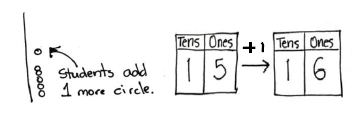 Students add
1 more circle.
Tens Ones
1 5
+1
Tens Ones
1 6